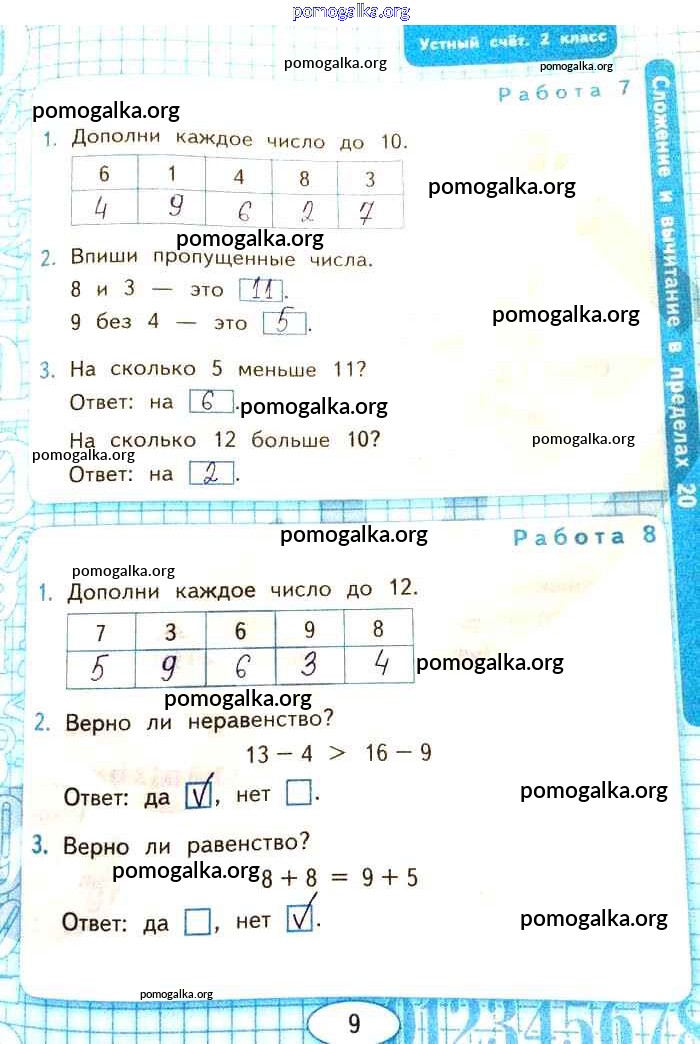 pomogalka.org
Устный счёт. 2 класс
pomogalka.org
pomogalka.org
Работа 7
pomogalka.org
1. Дополни каждое число до 10.
6 1 4 8 3
4 9 6 2 7
pomogalka.org
pomogalka.org
2. Впиши пропущенные числа.
8 и 3 — это 11.
9 без 4 — это 5.
pomogalka.org
3. На сколько 5 меньше 11?
Ответ: на 6.
pomogalka.org
На сколько 12 больше 10?
pomogalka.org
pomogalka.org
Ответ: на 2.
Сложение и вычитание в пределах 20
pomogalka.org
Работа 8
pomogalka.org
1. Дополни каждое число до 12.
7 3 6 9 8
5 9 6 3 4
pomogalka.org
pomogalka.org
2. Верно ли неравенство?
13 − 4 > 16 − 9
Ответ: да V, нет .
pomogalka.org
3. Верно ли равенство?
pomogalka.org
8 + 8 = 9 + 5
Ответ: да , нет V.
pomogalka.org
pomogalka.org
9
012345678